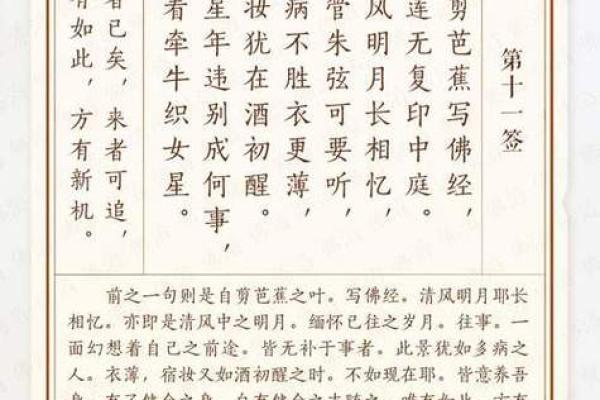 第十一签
剪芭蕉写佛经，
莲无复印中庭。
风明月长相忆，
管朱弦可要听，
病不胜衣更薄，
妆犹在酒初醒。
星年违别成何事，
看牵牛织女星。
者已矣，来者可追，
有如此，方有新机。
前之一句则是自剪芭蕉之叶。写佛经。清风明月耶长
相忆。亦即是清风中之明月。缅怀已往之岁月。往事。一
面幻想着自己之前途。皆无补于事者。此景犹如多病之
人。衣薄，宿妆又如酒初醒之时。不如现在耶。皆意养吾